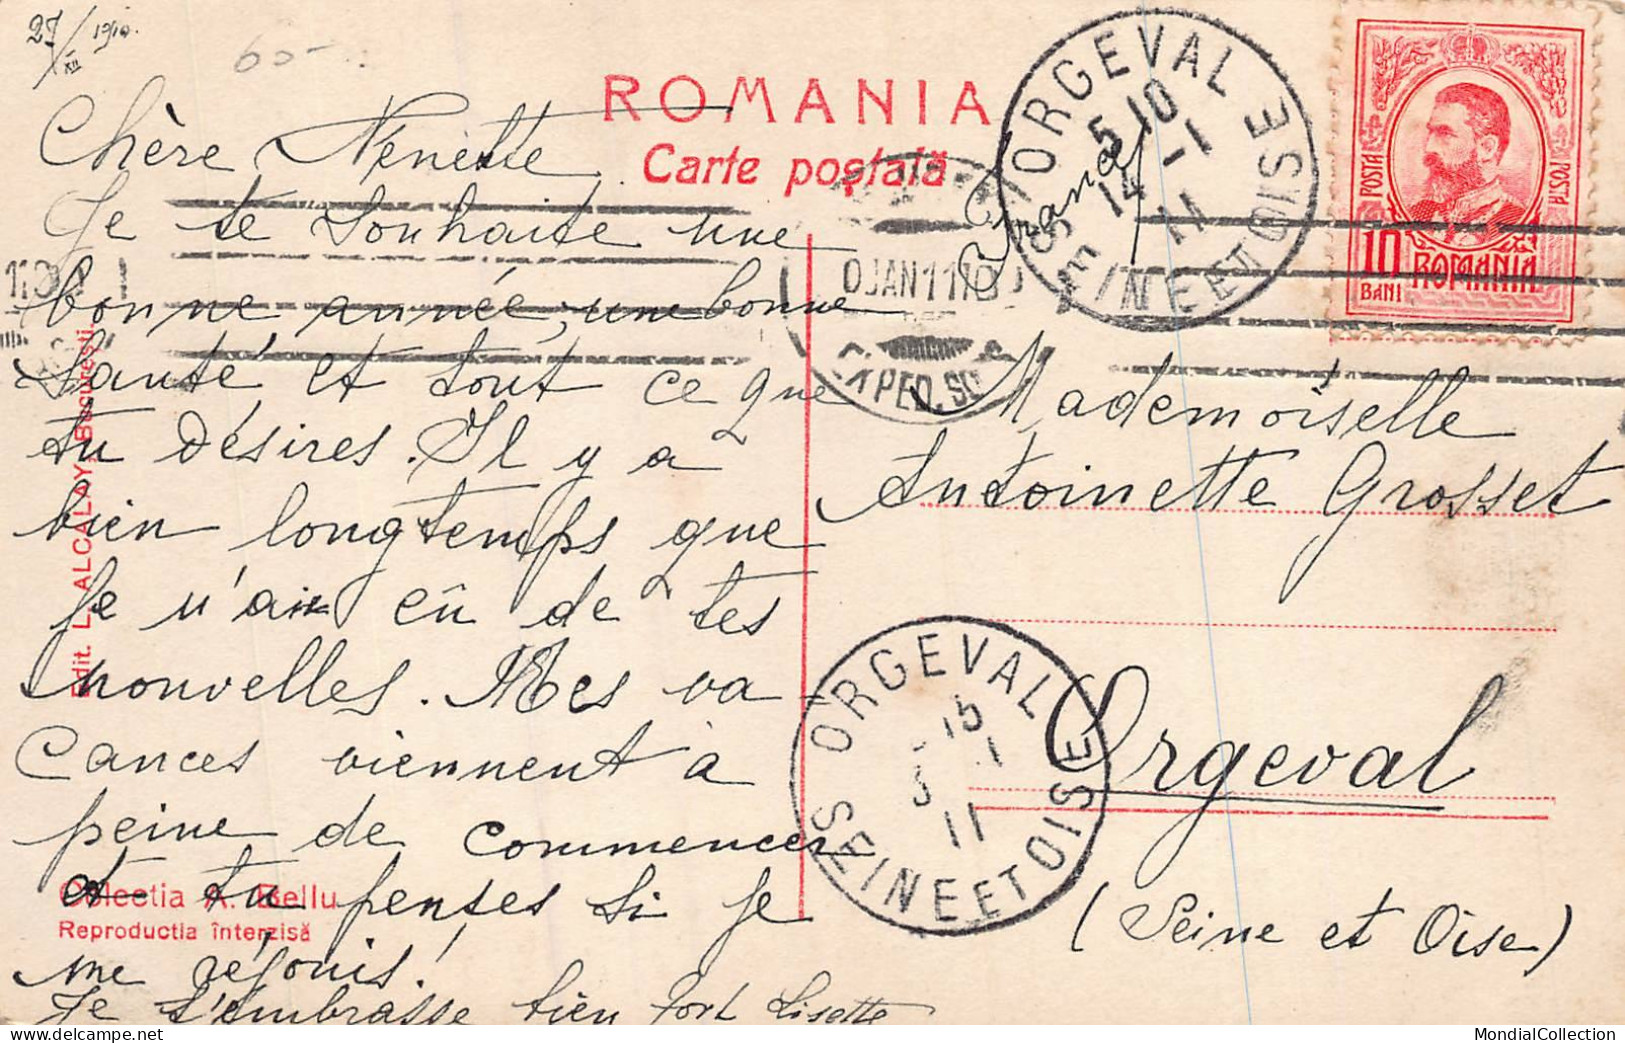 27/XII 1910.
60-
ROMANIA
Carte poştală
Chère Nenette
Je te souhaite une
bonne année, une bonne
santé et tout ce que
tu désires. Il y a
bien longtemps que
Je n'ai eû de tes
nouvelles. Mes va
cances viennent à
peine de commencer
et tu penses si je
me réjouis!
Je t'embrasse bien fort Lisette
Edit. L. ALCALAY, Bucureşti.
Colectia A. Bellu
Reproductia interzisă
ORGEVAL
5 10
14 -1
11
SEINE ET OISE
JAN 11
EXPED.
POSTA
POSTA
10
BANI
ROMANIA
Mademoiselle
Antoinette Grosset
Orgeval
(Seine et Oise)
ORGEVAL
15
1
11
SEINE ET OISE
MondialCollection